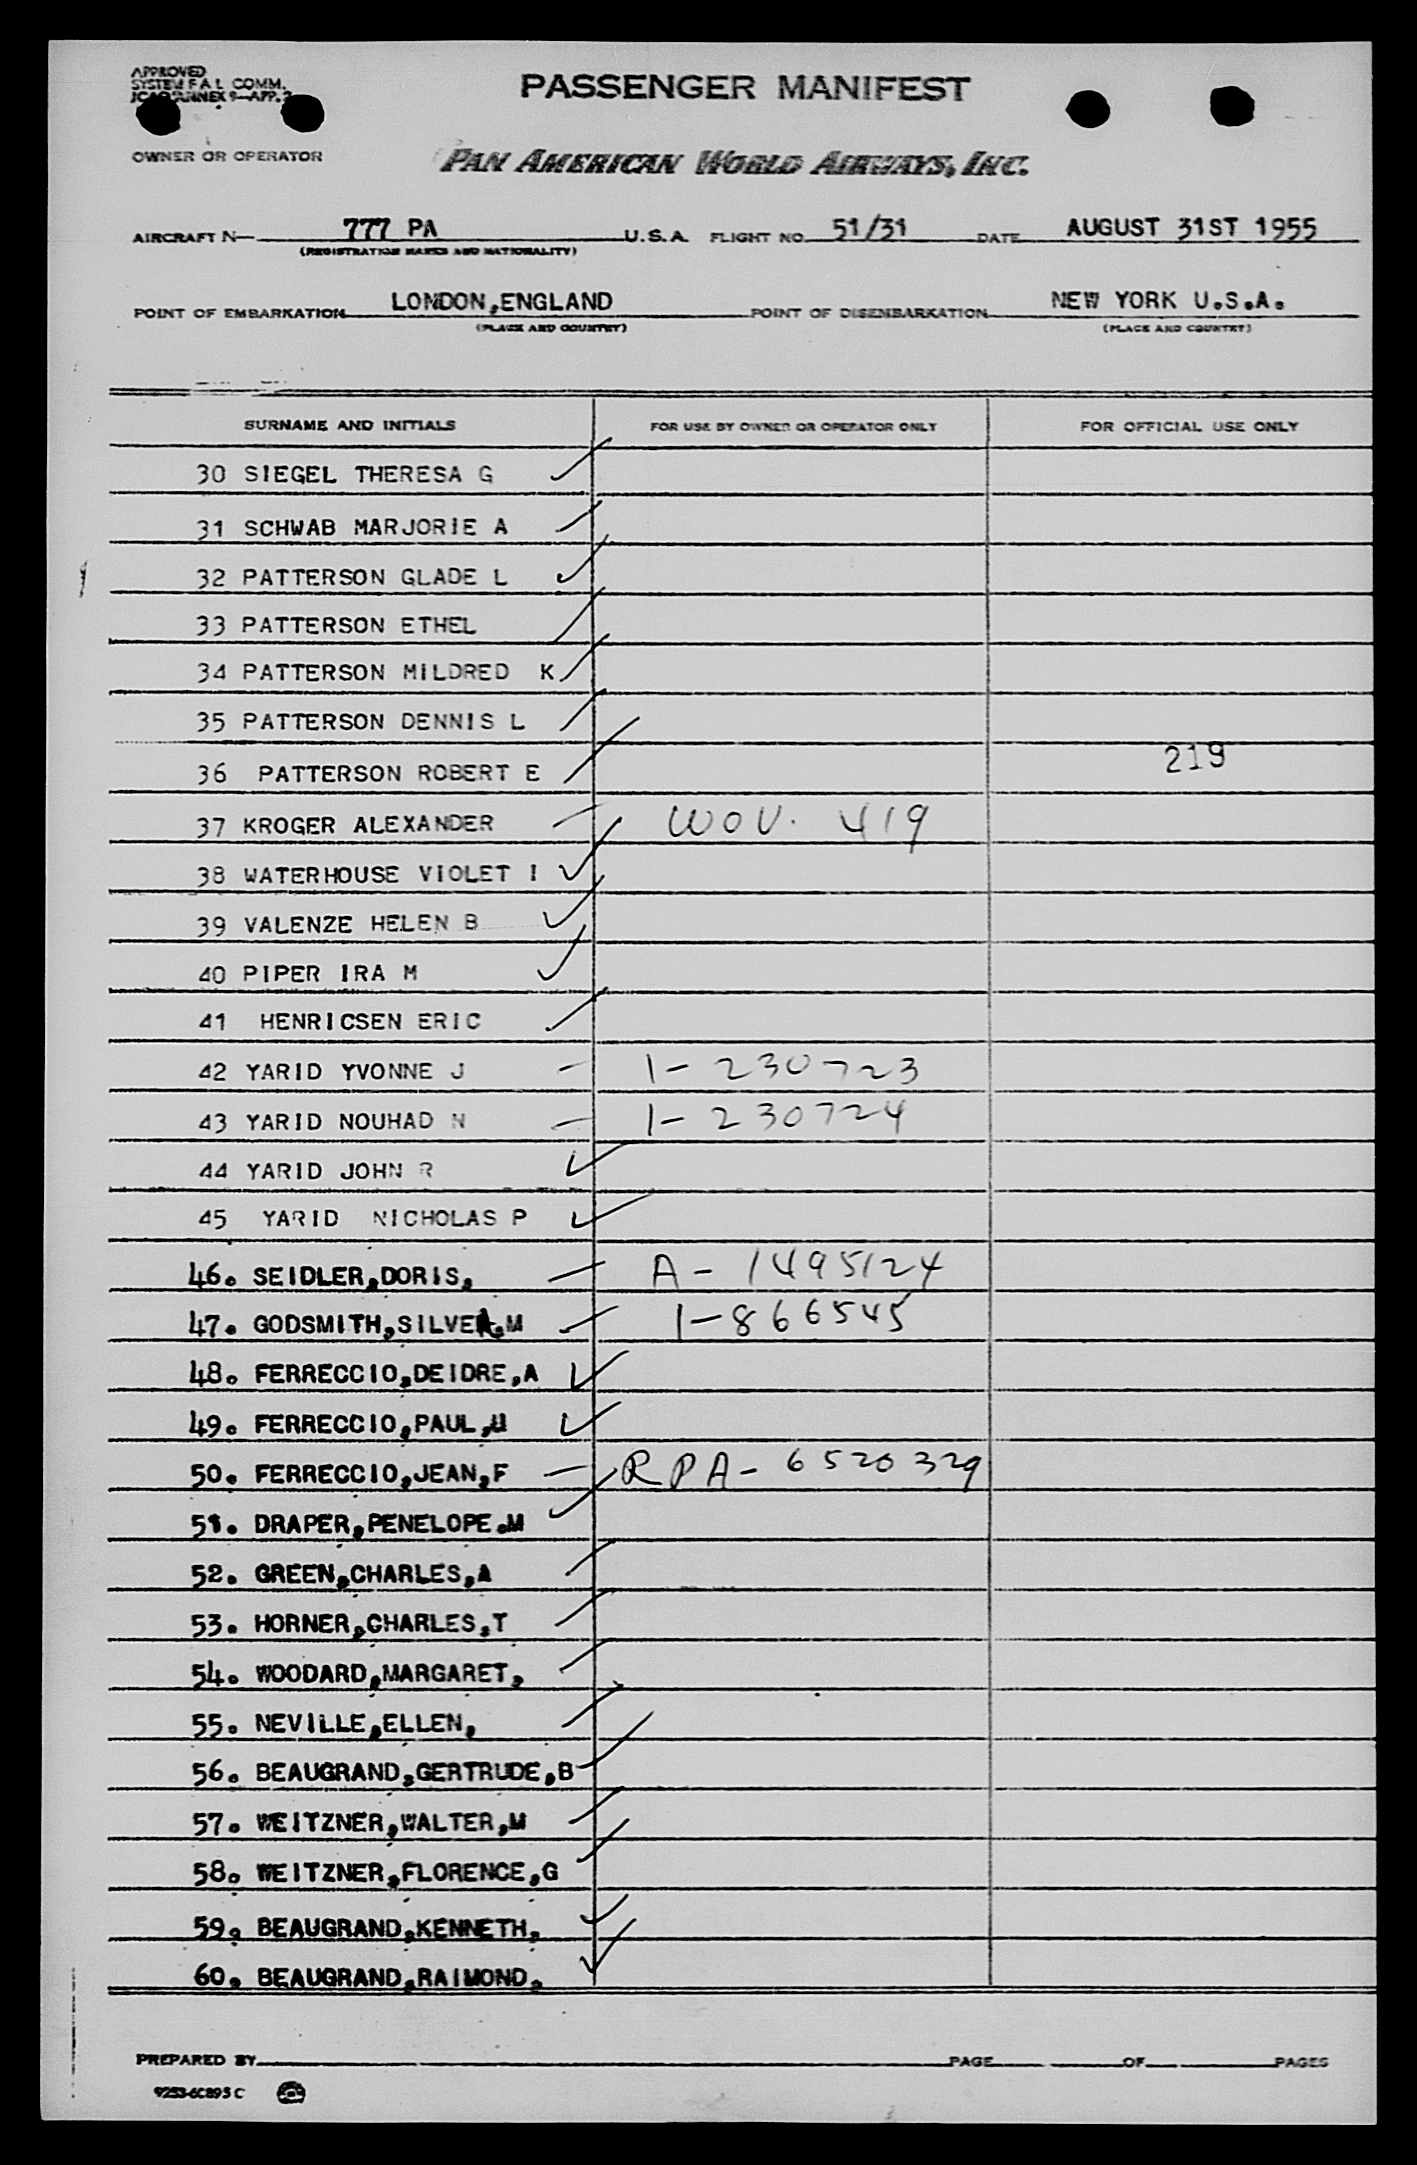 APPROVED
SYSTEM F A L COMM.
ANNEX 9—APP. 2
PASSENGER MANIFEST
OWNER OR OPERATOR
PAN AMERICAN WORLD AIRWAYS, INC.
AIRCRAFT N— 777 PA U.S.A. FLIGHT NO. 51/31 DATE AUGUST 31ST 1955
(REGISTRATION MARKS AND NATIONALITY)
POINT OF EMBARKATION LONDON,ENGLAND POINT OF DISEMBARKATION NEW YORK U.S.A.
(PLACE AND COUNTRY) (PLACE AND COUNTRY)
SURNAME AND INITIALS FOR USE BY OWNER OR OPERATOR ONLY FOR OFFICIAL USE ONLY
30 SIEGEL THERESA G
31 SCHWAB MARJORIE A
32 PATTERSON GLADE L
33 PATTERSON ETHEL
34 PATTERSON MILDRED K
35 PATTERSON DENNIS L
36 PATTERSON ROBERT E 219
37 KROGER ALEXANDER WOV. 419
38 WATERHOUSE VIOLET I
39 VALENZE HELEN B
40 PIPER IRA M
41 HENRICSEN ERIC
42 YARID YVONNE J 1-230723
43 YARID NOUHAD N 1-230724
44 YARID JOHN R
45 YARID NICHOLAS P
46. SEIDLER,DORIS, A-1495124
47. GODSMITH,SILVER,M 1-866545
48. FERRECCIO,DEIDRE,A
49. FERRECCIO,PAUL,U
50. FERRECCIO,JEAN,F RPA-6520329
51. DRAPER,PENELOPE.M
52. GREEN,CHARLES,A
53. HORNER,CHARLES,T
54. WOODARD,MARGARET,
55. NEVILLE,ELLEN,
56. BEAUGRAND,GERTRUDE,B
57. WEITZNER,WALTER,M
58. WEITZNER,FLORENCE,G
59. BEAUGRAND,KENNETH,
60. BEAUGRAND,RAIMOND,
PREPARED BY PAGE OF PAGES
9253-6C895 C